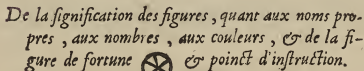 De la ſignification des figures, quant aux noms pro-
pres, aux nombres, aux couleurs, & de la fi-
gure de fortune & poinct d'inſtruction.